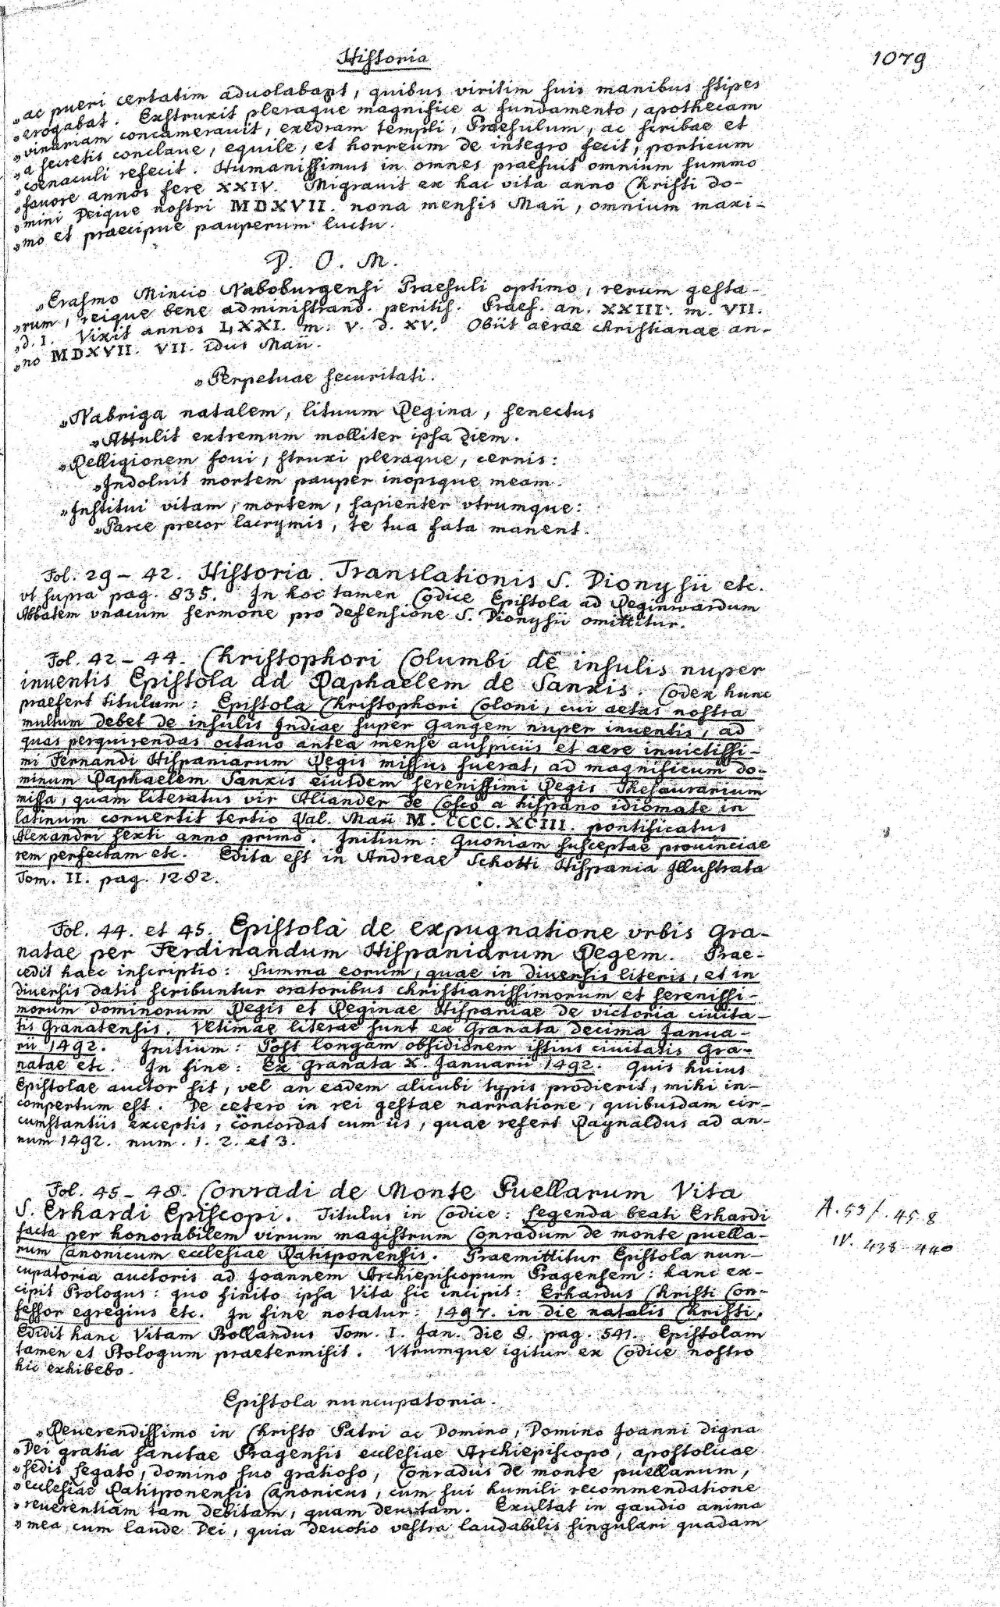 Historia
1079
„ac pueri certatim aduolabant, quibus viritim suis manibus stipes
„erogabat. Exstruxit pleraque magnifice a fundamento, apothecam
„vinariam concamerauit, exedram templi, Praesulum, ac scribae et
„a secretis conclaue, equile, et horreum de integro fecit, porticum
„coenaculi refecit. Humanissimus in omnes praefuit omnium summo
„fauore annos fere XXIV. Migrauit ex hac vita anno Christi do-
„mini Deique nostri MDXVII. nona mensis Maii, omnium maxi-
„mo et praecipue pauperum luctu.
D. O. M.
„Erasmo Mincio Naboburgensi Praesuli optimo, rerum gesta-
„rum, reique bene administrand. peritis. Praef. an. XXIII. m. VII.
„d. I. Vixit annos LXXI. m. V. d. XV. Obiit aerae christianae an-
„no MDXVII. VII. Idus Maii.
„Perpetuae securitati.
„Nabriga natalem, lituum Regina, senectus
„Attulit extremum molliter ipsa diem.
„Relligionem foui, struxi pleraque, cernis:
„Indoluit mortem pauper inopsque meam.
„Institui vitam, mortem, sapienter vtrumque:
„Parce precor lacrymis, te tua fata manent.
Fol. 29 - 42. Historia Translationis S. Dionysii etc.
vt supra pag. 835. In hoc tamen Codice Epistola ad Reginwardum
Abbatem vnacum sermone pro defensione S. Dionysii omittitur.
Fol. 42 - 44. Christophori Columbi de insulis nuper
inuentis Epistola ad Raphaelem de Sanxis. Codex hunc
praefert titulum: Epistola Christophori Coloni, cui aetas nostra
multum debet de insulis Indiae super Gangem nuper inuentis, ad
quas perquirendas octauo antea mense auspiciis et aere inuictissi-
mi Fernandi Hispaniarum Regis missus fuerat, ad magnificum do-
minum Raphaelem Sanxis eiusdem serenissimi Regis Thesaurarium
missa, quam literatus vir Aliander de Cosco a hispano idiomate in
latinum conuertit tertio Kal. Maii M. CCCC. XCIII. pontificatus
Alexandri sexti anno primo. Initium: Quoniam susceptae prouinciae
rem perfectam etc. Edita est in Andreae Schotti Hispania Illustrata
Tom. II. pag. 1282.
Fol. 44. et 45. Epistola de expugnatione vrbis Gra-
natae per Ferdinandum Hispaniarum Regem. Prae-
cedit haec inscriptio: Summa eorum, quae in diuersis literis, et in
diuersis datis scribuntur oratoribus christianissimorum et serenissi-
morum dominorum Regis et Reginae Hispaniae de victoria ciuita-
tis Granatensis. Vltimae literae sunt ex Granata decima Janua-
rii 1492. Initium: Post longam obsidionem istius ciuitatis Gra-
natae etc. In fine: Ex Granata X. Januarii 1492. Quis huius
Epistolae auctor sit, vel an eadem alicubi typis prodierit, mihi in-
compertum est. De cetero in rei gestae narratione, quibusdam cir-
cumstantiis exceptis, concordat cum iis, quae refert Raynaldus ad an-
num 1492. num. 1. 2. et 3.
Fol. 45 - 48. Conradi de Monte Puellarum Vita
S. Erhardi Episcopi. Titulus in Codice: Legenda beati Erhardi
facta per honorabilem virum magistrum Conradum de monte puella-
rum Canonicum ecclesiae Ratisponensis. Praemittitur Epistola nun-
cupatoria auctoris ad Joannem Archiepiscopum Pragensem: hanc ex-
cipit Prologus: quo finito ipsa Vita sic incipit: Erhardus Christi Con-
fessor egregius etc. In fine notatur: 1497. in die natalis Christi.
Edidit hanc Vitam Bollandus Tom. I. Jan. die 8. pag. 541. Epistolam
tamen et Prologum praetermisit. Vtrumque igitur ex Codice nostro
hic exhibebo.
A. 53/. 45.8
IV. 438-440
Epistola nuncupatoria.
„Reuerendissimo in Christo Patri ac Domino, Domino Joanni digna
„Dei gratia sanctae Pragensis ecclesiae Archiepiscopo, apostolicae
„sedis legato, domino suo gratioso, Conradus de monte puellarum,
„ecclesiae Ratisponensis Canonicus, cum sui humili recommendatione
„reuerentiam tam debitam, quam deuotam. Exultat in gaudio anima
„mea cum laude Dei, quia deuotio vestra laudabilis singulari quadam